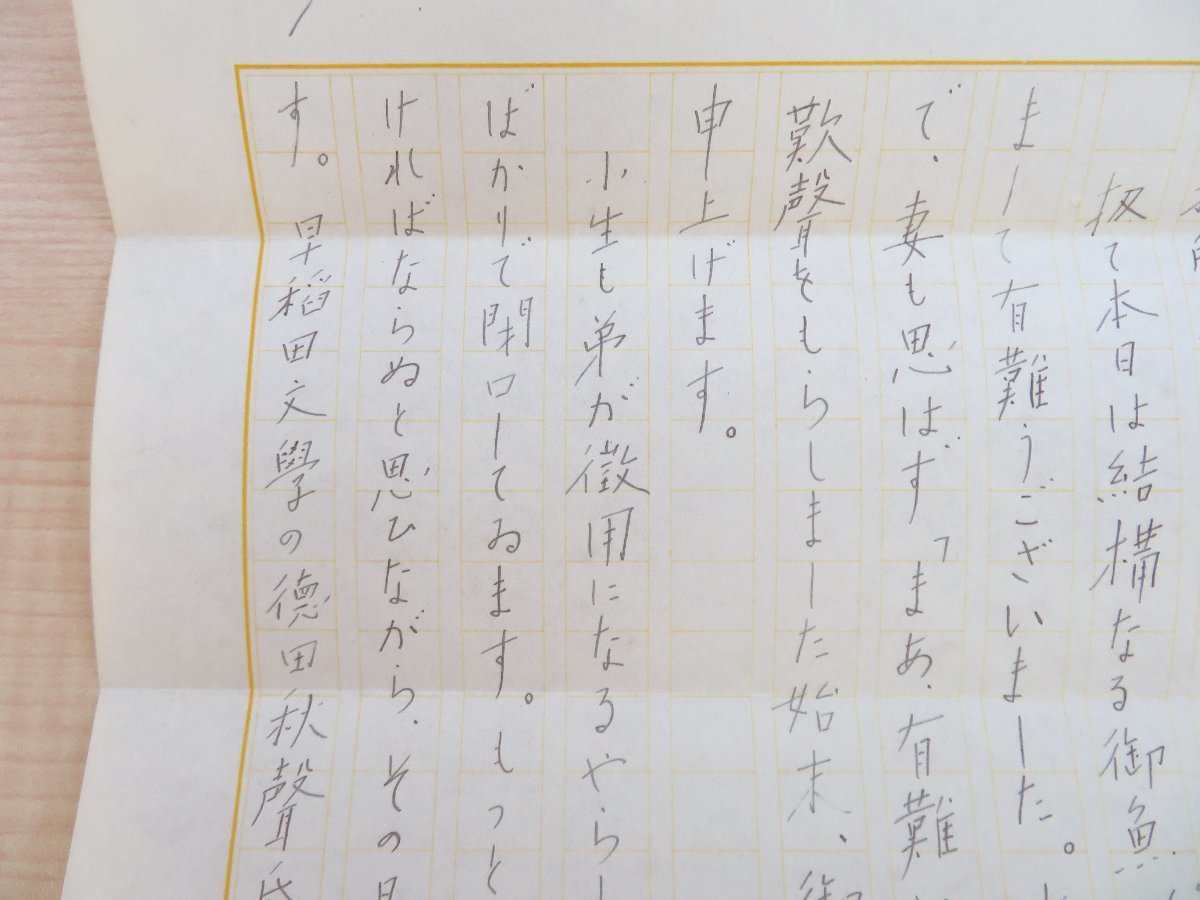 扨て本日は結構なる御魚
まして有難うございました。
で、妻も思はず「まあ、有難
歎聲をもらしました始末、御
申上げます。
小生も弟が徴用になるやらし
ばかりで閉口してゐます。もっと
ければならぬと思ひながら、その
す。早稲田文學の德田秋聲氏